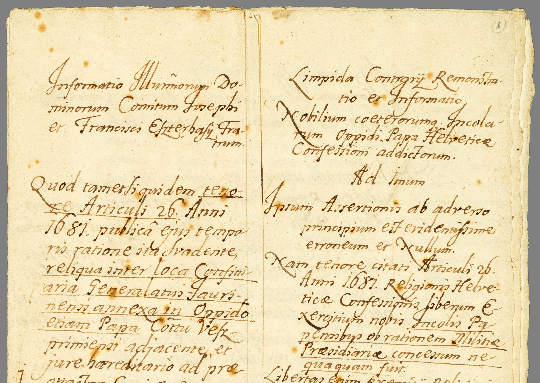 Informatio Illmorum Do-
minorum Comitum Josephi
et Francisci Eszterhasy Fra-
trum.
Quod tametsi quidem teno-
re Articuli 26. Anni
1681. publica ejus tempo-
ris ratione ita svadente,
reliqua inter loca Confini-
aria Generalatus Jauri-
nensi annexa in Oppido
etiam Papa Cottu Vesz-
primiensi adjacente, et
jure hæreditario ad præ-
1
Limpida Contrarij Remonstra-
tio et Informatio
Nobilium coeterorumq Incola-
rum Oppidi Papa Helveticæ
Confessioni addictorum.
Ad 1mum
Ipsum Assertionis ab adverso
principium est evidentissime
erroneum et Nullum.
Nam tenore citati Articuli 26.
Anni 1681. Religionis Helve-
ticæ Confessionis liberum E-
xercitium nobis Incolis Pa-
pensibus ob rationem Militiæ
Præsidiariæ concessum ne-
quaquam fuit.
Libertas enim